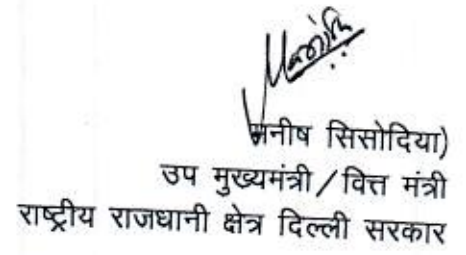 मनीष सिसोदिया)
उप मुख्यमंत्री / वित्त मंत्री
राष्ट्रीय राजधानी क्षेत्र दिल्ली सरकार